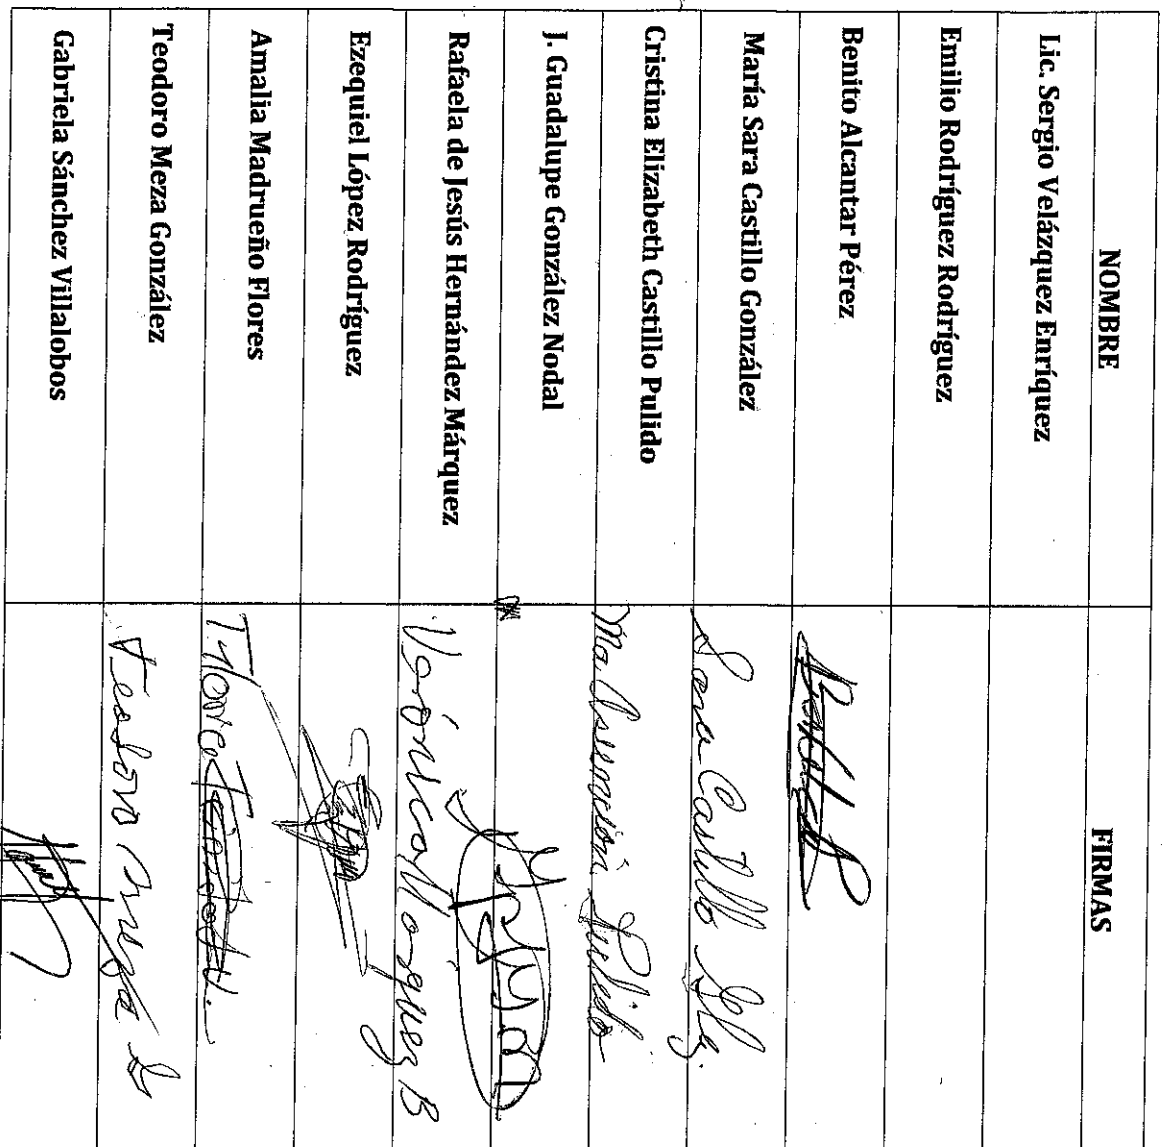 NOMBRE FIRMAS
Lic. Sergio Velázquez Enríquez
Emilio Rodríguez Rodríguez
Benito Alcantar Pérez
María Sara Castillo González Sara Castillo Glz.
Cristina Elizabeth Castillo Pulido Ma Asunción Pulido
J. Guadalupe González Nodal
Rafaela de Jesús Hernández Márquez
Ezequiel López Rodríguez
Amalia Madrueño Flores
Teodoro Meza González Teodoro Meza G
Gabriela Sánchez Villalobos